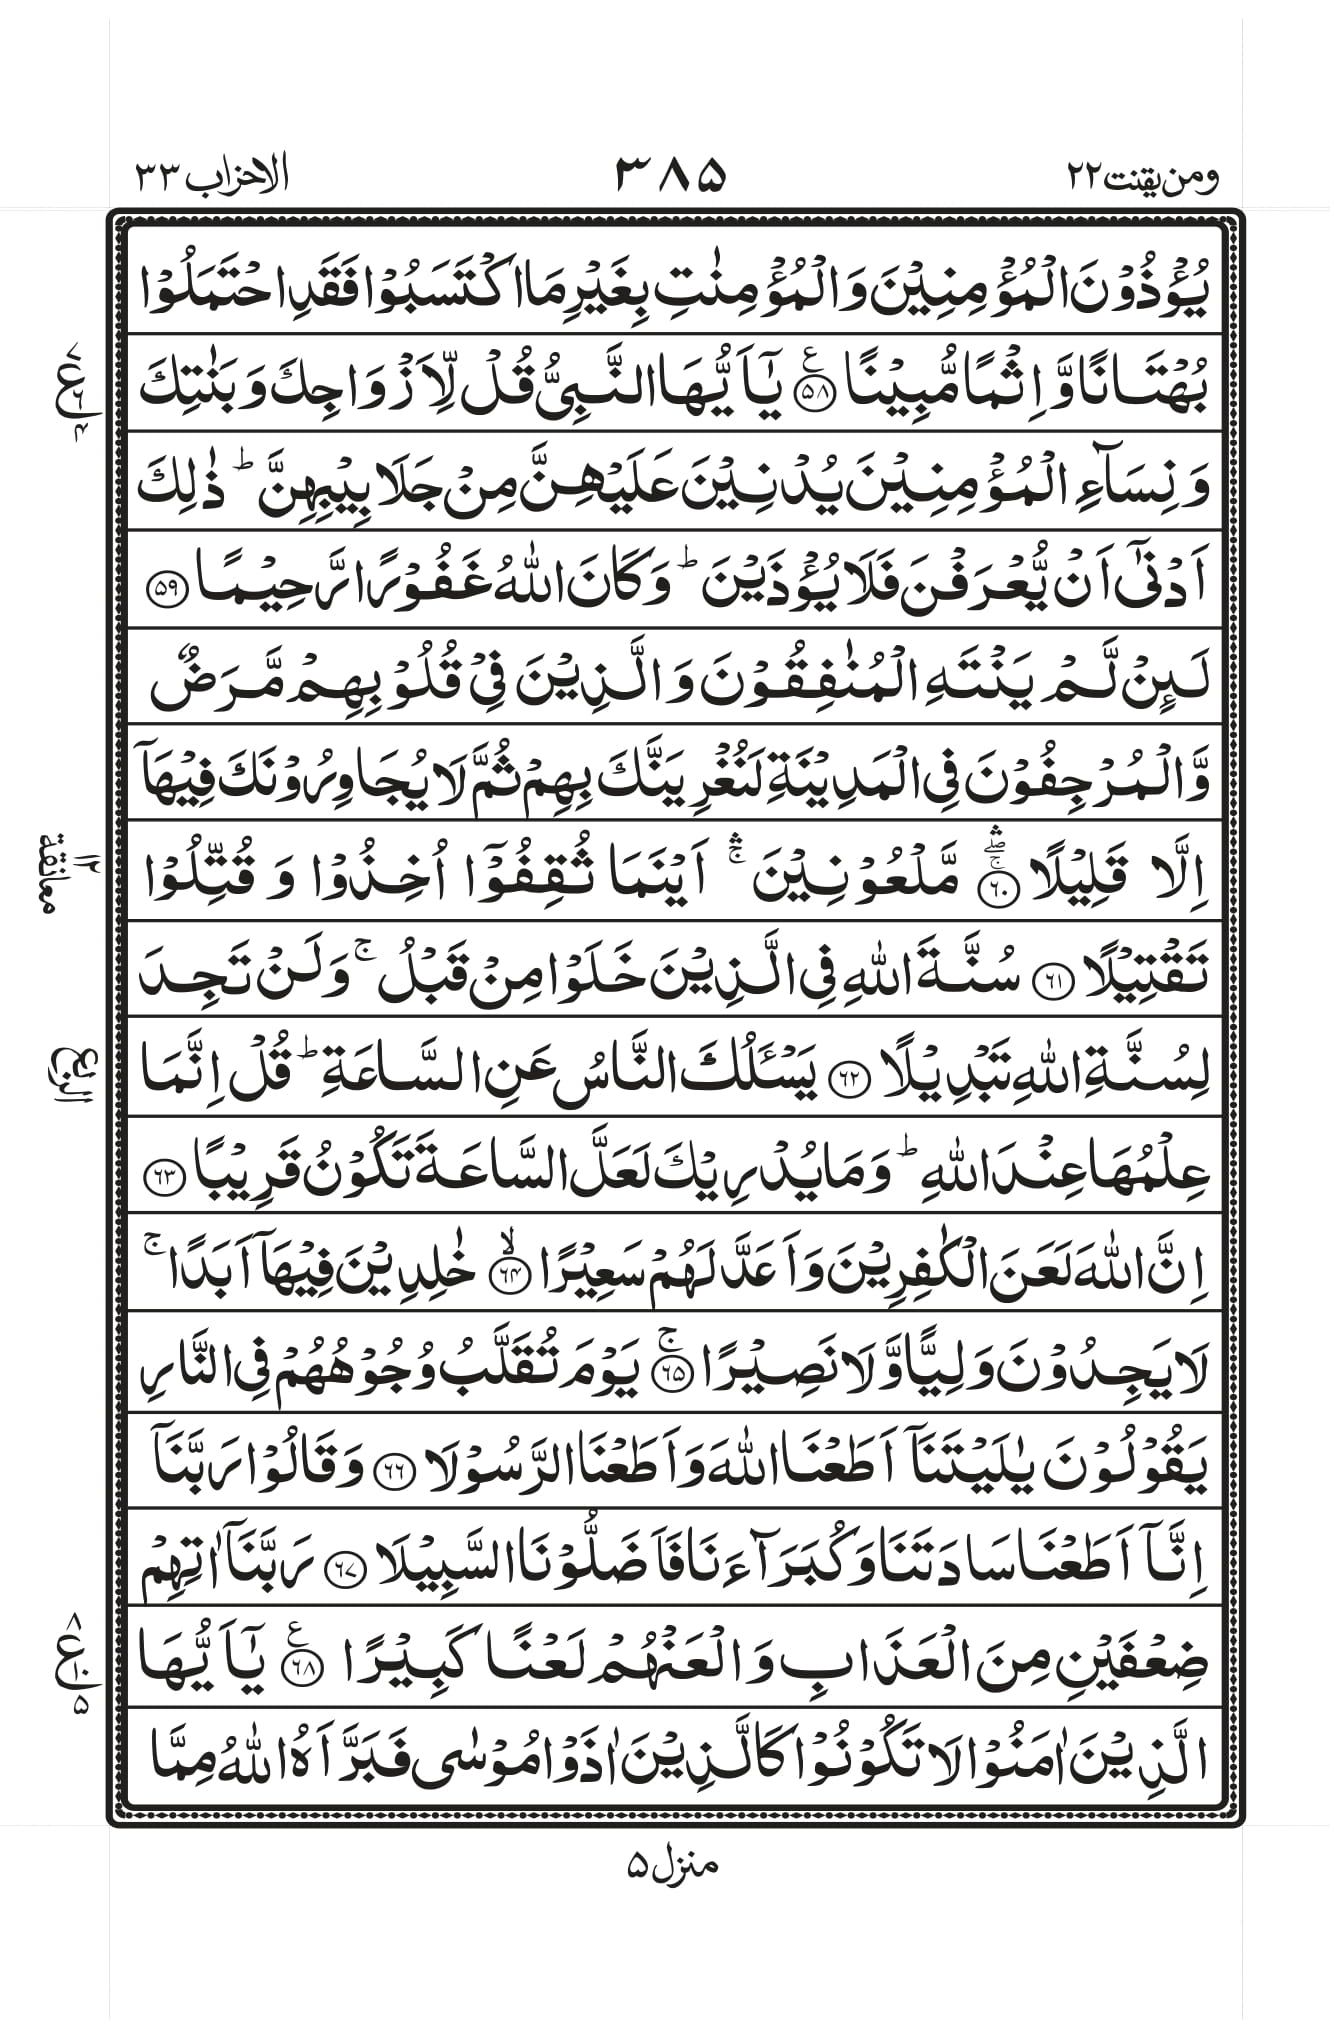 ومن یقنت ۲۲
۳۸۵
الاحزاب ۳۳
يُؤۡذُوۡنَ الۡمُؤۡمِنِيۡنَ وَالۡمُؤۡمِنٰتِ بِغَيۡرِ مَا اكۡتَسَبُوۡا فَقَدِ احۡتَمَلُوۡا
بُهۡتَانًا وَّاِثۡمًا مُّبِيۡنًا ؑ ﴿۵۸﴾ يٰۤاَيُّهَا النَّبِىُّ قُلْ لِّاَزۡوَاجِكَ وَبَنٰتِكَ
وَنِسَآءِ الۡمُؤۡمِنِيۡنَ يُدۡنِيۡنَ عَلَيۡهِنَّ مِنۡ جَلَابِيۡبِهِنَّ ؕ ذٰ لِكَ
اَدۡنٰٓى اَنۡ يُّعۡرَفۡنَ فَلَا يُؤۡذَيۡنَ ؕ وَكَانَ اللّٰهُ غَفُوۡرًا رَّحِيۡمًا ﴿۵۹﴾
لَـئِنۡ لَّمۡ يَنۡتَهِ الۡمُنٰفِقُوۡنَ وَالَّذِيۡنَ فِىۡ قُلُوۡبِهِمۡ مَّرَضٌ
وَّالۡمُرۡجِفُوۡنَ فِى الۡمَدِيۡنَةِ لَـنُغۡرِيَنَّكَ بِهِمۡ ثُمَّ لَا يُجَاوِرُوۡنَكَ فِيۡهَاۤ
اِلَّا قَلِيۡلًا ۛۚ ۖ ﴿۶۰﴾ مَّلۡـعُوۡنِيۡنَ ۛۚ اَيۡنَمَا ثُقِفُوۡۤا اُخِذُوۡا وَقُتِّلُوۡا
تَقۡتِيۡلًا ﴿۶۱﴾ سُنَّةَ اللّٰهِ فِى الَّذِيۡنَ خَلَوۡا مِنۡ قَبۡلُ ۚ وَلَنۡ تَجِدَ
لِسُنَّةِ اللّٰهِ تَبۡدِيۡلًا ﴿۶۲﴾ يَسۡــَٔلُكَ النَّاسُ عَنِ السَّاعَةِ ؕ قُلۡ اِنَّمَا
عِلۡمُهَا عِنۡدَ اللّٰهِ ؕ وَمَا يُدۡرِيۡكَ لَعَلَّ السَّاعَةَ تَكُوۡنُ قَرِيۡبًا ﴿۶۳﴾
اِنَّ اللّٰهَ لَعَنَ الۡكٰفِرِيۡنَ وَاَعَدَّ لَهُمۡ سَعِيۡرًا ۙ ﴿۶۴﴾ خٰلِدِيۡنَ فِيۡهَاۤ اَبَدًا ۚ
لَا يَجِدُوۡنَ وَلِيًّا وَّلَا نَصِيۡرًا ۚ ﴿۶۵﴾ يَوۡمَ تُقَلَّبُ وُجُوۡهُهُمۡ فِى النَّارِ
يَقُوۡلُوۡنَ يٰلَيۡتَـنَاۤ اَطَعۡنَا اللّٰهَ وَاَطَعۡنَا الرَّسُوۡلَا ﴿۶۶﴾ وَقَالُوۡا رَبَّنَاۤ
اِنَّاۤ اَطَعۡنَا سَادَتَنَا وَكُبَرَآءَنَا فَاَضَلُّوۡنَا السَّبِيۡلَا ﴿۶۷﴾ رَبَّنَاۤ اٰتِهِمۡ
ضِعۡفَيۡنِ مِنَ الۡعَذَابِ وَالۡعَنۡهُمۡ لَعۡنًا كَبِيۡرًا ؑ ﴿۶۸﴾ يٰۤاَيُّهَا
الَّذِيۡنَ اٰمَنُوۡا لَا تَكُوۡنُوۡا كَالَّذِيۡنَ اٰذَوۡا مُوۡسٰى فَبَرَّاَهُ اللّٰهُ مِمَّا
۷
ع
۶
۴
معانقة ۱۲
الربع
۸
ع
۱۰
۵
منزل ۵